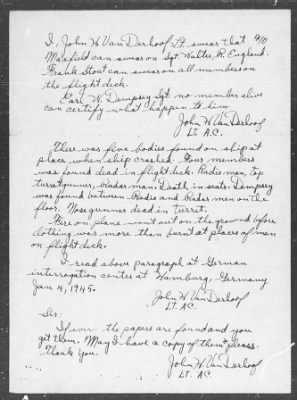 I, John W. Van Derhoof Lt. swear that 910
Maxfield can swear on Sgt. Walter R. England.
Frank Stout can swear on all members on
the flight deck.
Earl W. Dempsey Sgt. no member alive
can certify what happen to him
John W. Van Derhoof
Lt. A.C.
There was five bodies found on ship at
place when ship crashed. Four members
was found dead in flight deck. Radio man, top
turret gunner, Radar man. Death in seats. Dempsey
was found between Radio and Radar men on the
floor. Nose gunner dead in turret.
Fire on plane went out on the ground before
clothing was more than burnt at places of men
on flight deck.
I read above paragraph at German
interrogation center at Hamburg, Germany
Jan 4, 1945.
John W. Van Derhoof
Lt. A.C.
Sir:
If ever the papers are found and you
get them. May I have a copy of them please.
Thank You.
John W. Van Derhoof
Lt. A.C.